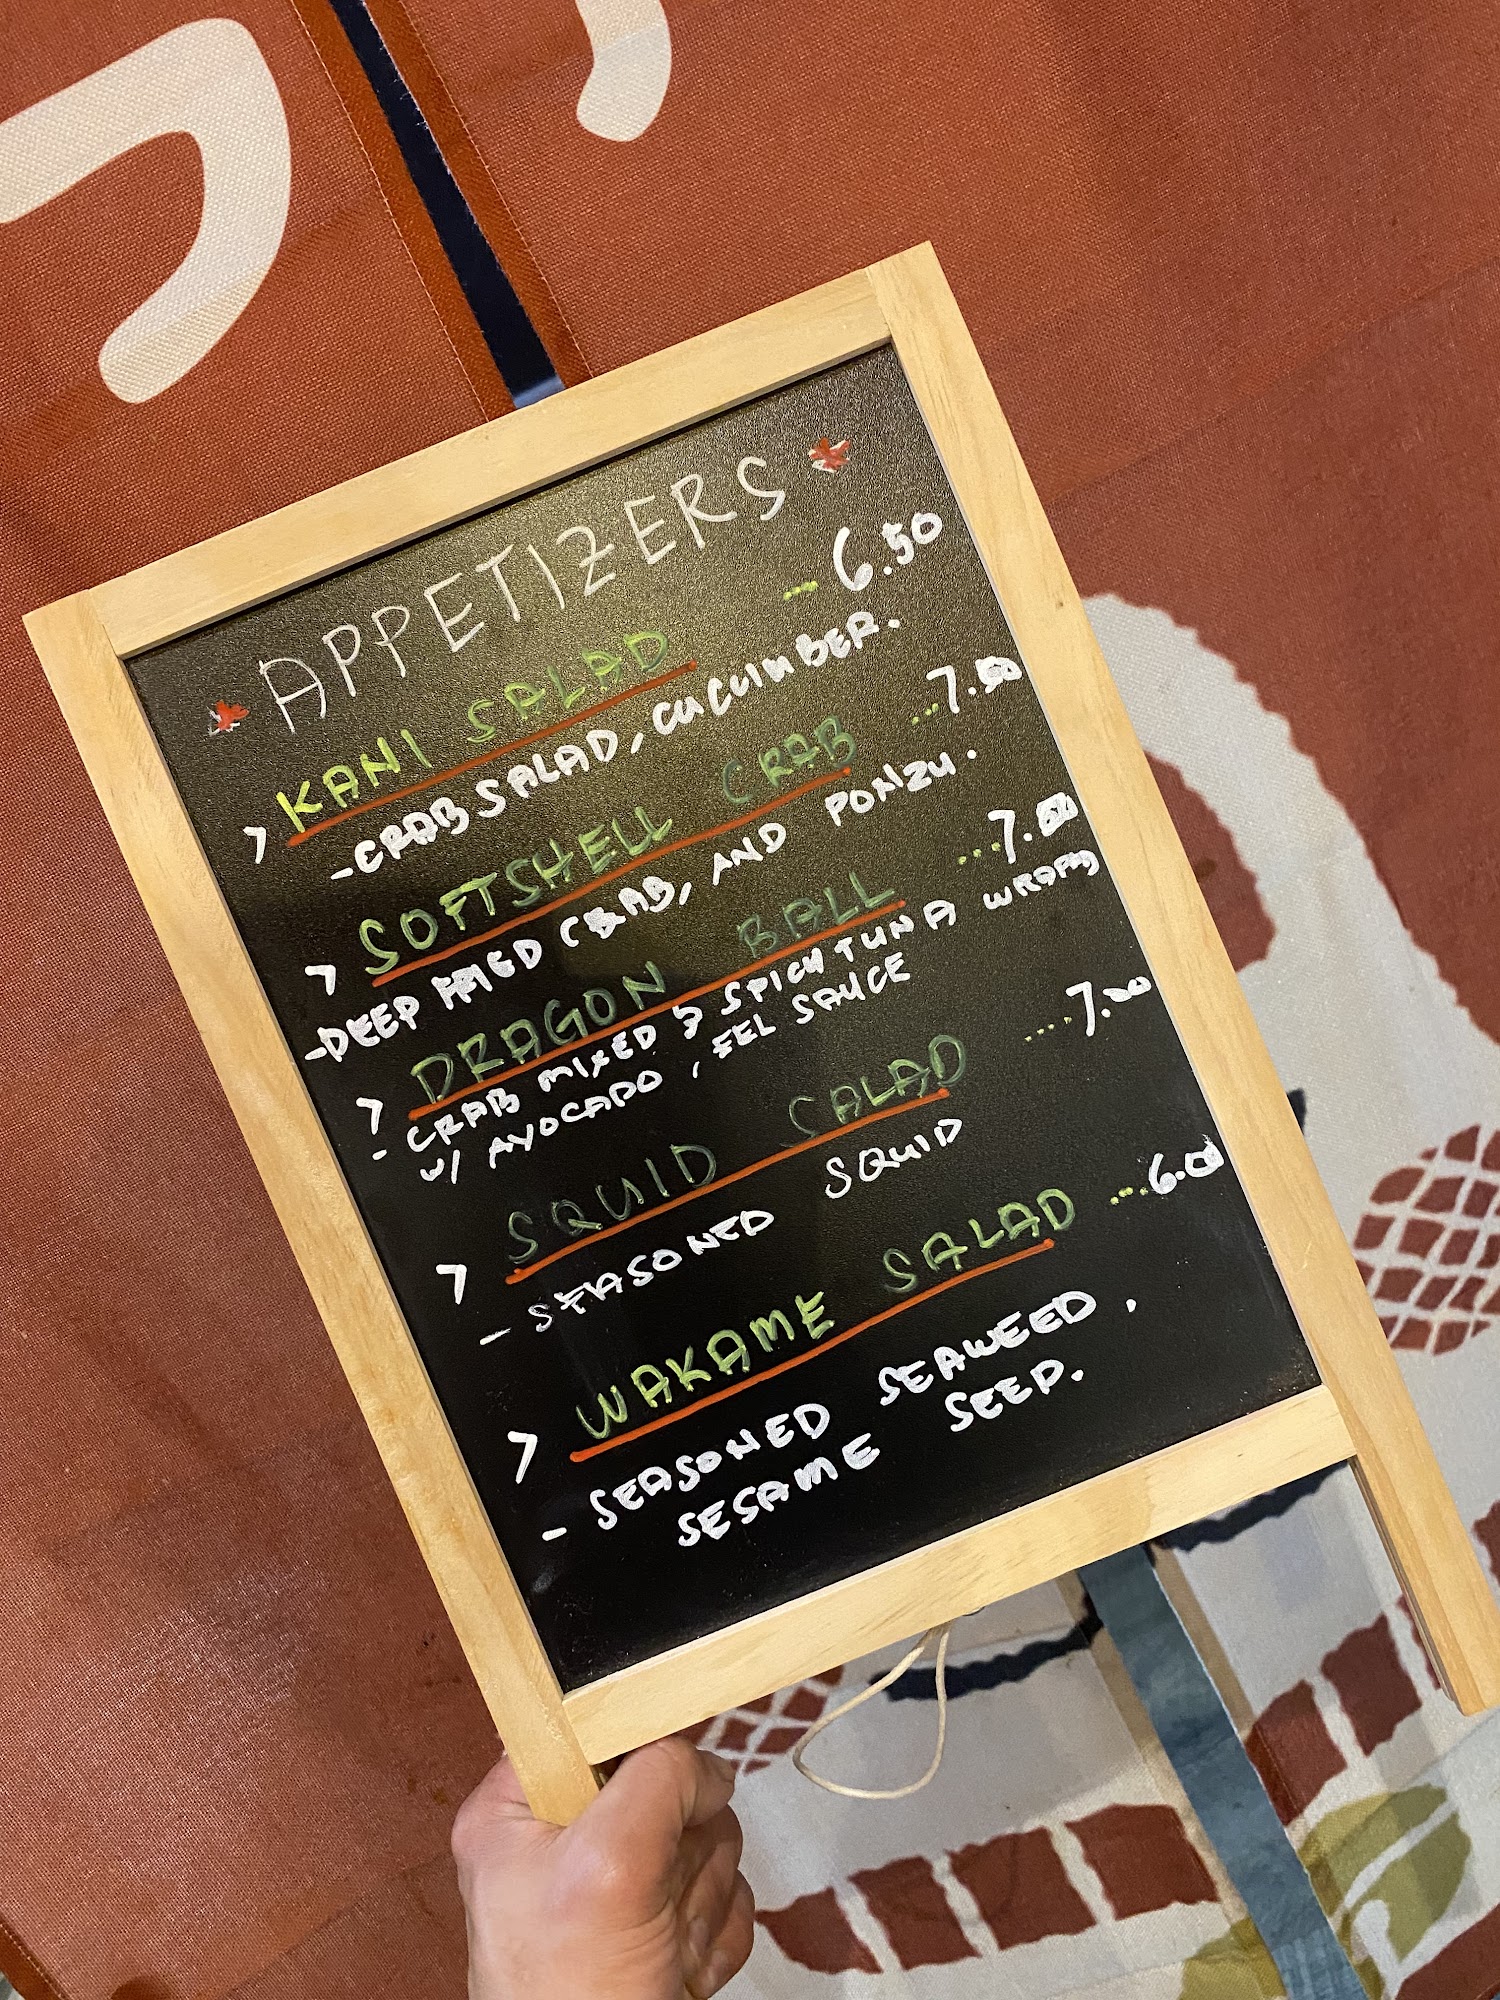 APPETIZERS
> KANI SALAD ... 6.50
- CRAB SALAD, CUCUMBER.
> SOFTSHELL CRAB ... 7.00
- DEEP FRIED CRAB, AND PONZU.
> DRAGON BALL ... 7.00
- CRAB MIXED & SPICY TUNA WRAPS
W/ AVOCADO, EEL SAUCE
> SQUID SALAD .... 7.00
- SEASONED SQUID
> WAKAME SALAD ... 6.00
- SEASONED SEAWEED,
SESAME SEED.